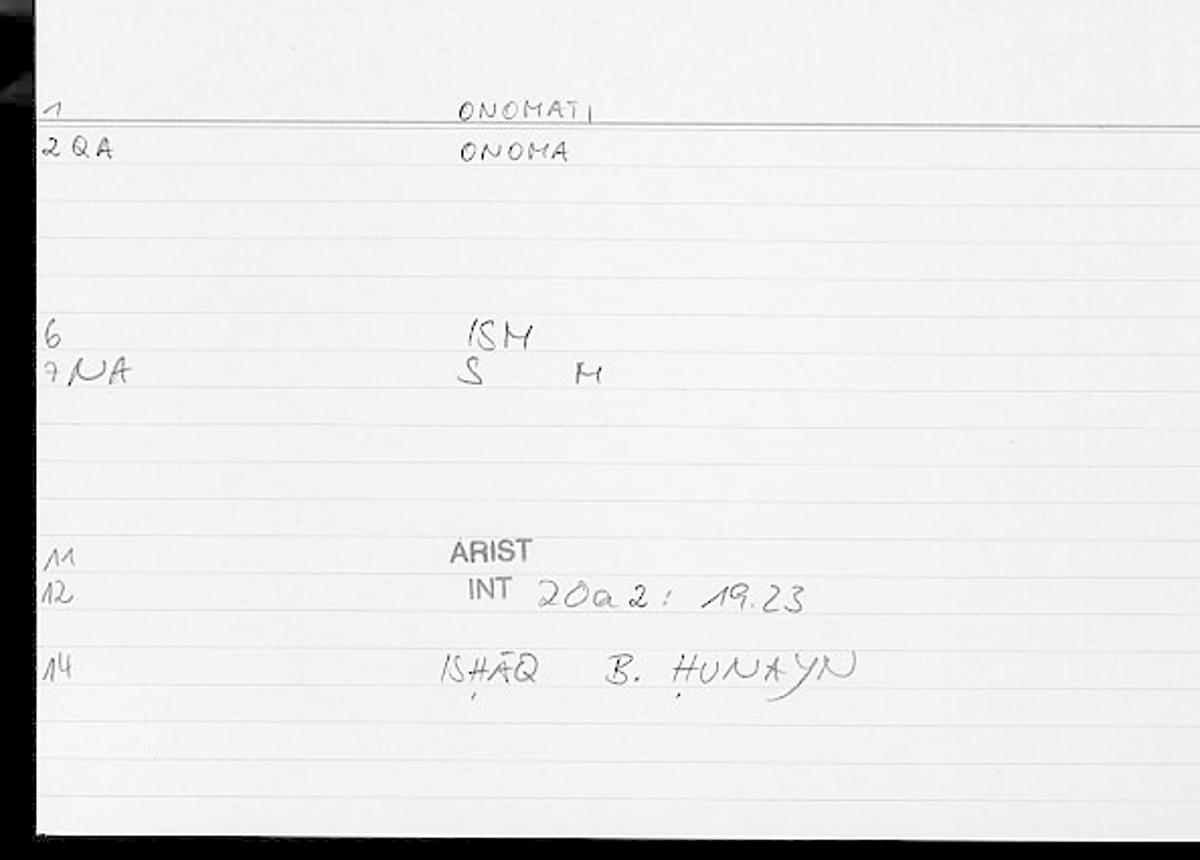 1 ONOMATI
2 QA ONOMA
6 ISM
7 NA S M
11 ARIST
12 INT 20a2: 19.23
14 ISḤĀQ B. ḤUNAYN